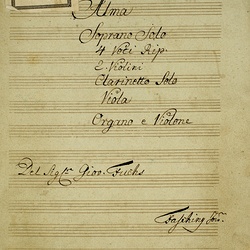 Alma
Soprano Solo
4 Voci Rip.
2. Violini
Clarinetto Solo
Viola
Organo e Violone
Del Sigre Giov. Fuchs
Fasching